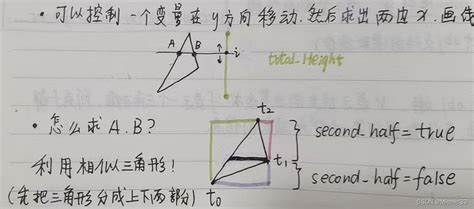 · 可以控制一个变量在y方向移动.然后求出两边x.画线
A B i
total_Height
· 怎么求A.B?
利用相似三角形!
(先把三角形分成上下两部分)
t₂
t₁
t₀
} second_half = true
} second_half = false